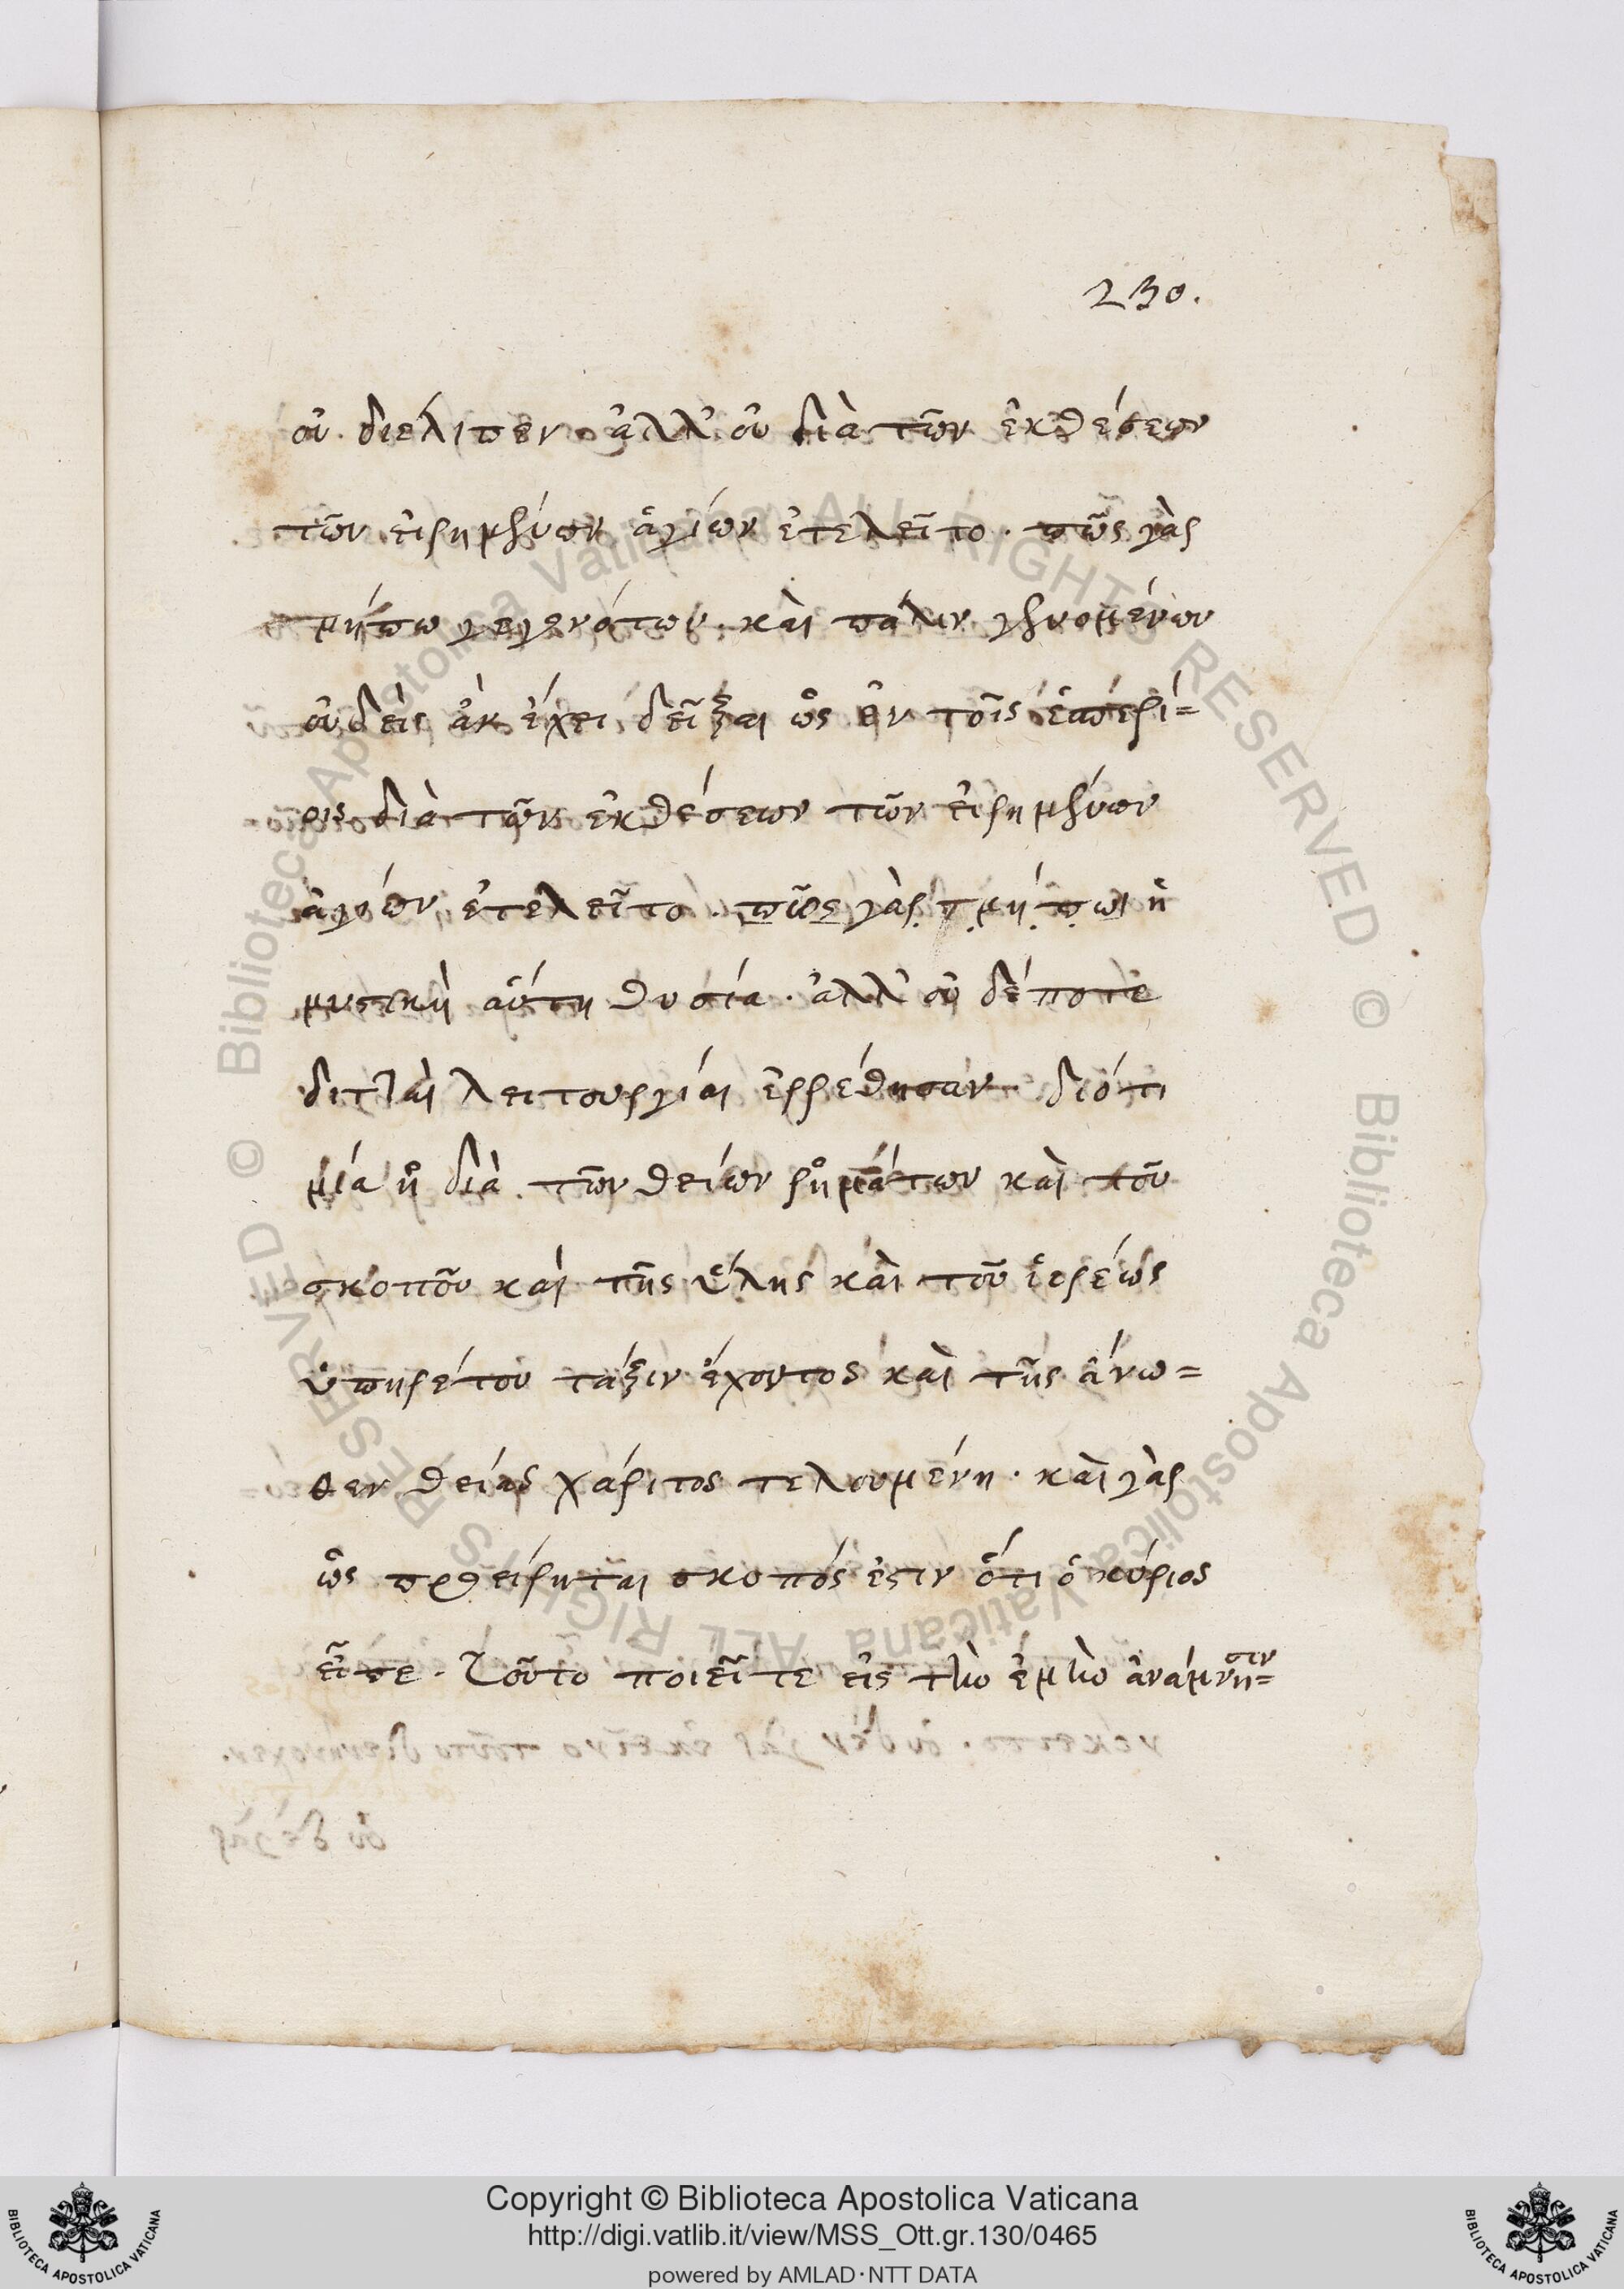 230.
οὐ διέλιπεν. ἀλλ' οὐ διὰ τῶν ἐκθέσεων
τῶν εἰρημένων ἁγίων ἐτελεῖτο. πῶς γὰρ
μήπω γεγενότων. καὶ πάλιν γενομένων
οὐδεὶς ἂν ἔχει δεῖξαι ὡς ἐν τοῖς ἑσπερί=
οις διὰ τῶν ἐκθέσεων τῶν εἰρημένων
ἁγίων ἐτελεῖτο. πῶς γὰρ μήπω ἡ
μυστικὴ αὕτη θυσία. ἀλλ' οὐδέποτε
διτταὶ λειτουργίαι ἐρρέθησαν. διότι
μία ἡ διὰ τῶν θείων ῥημάτων καὶ τοῦ
σκοποῦ καὶ τῆς ὕλης καὶ τοῦ ἱερέως
ὑπηρέτου τάξιν ἔχοντος καὶ τῆς ἄνω=
θεν θείας χάριτος τελουμένη. καὶ γὰρ
ὡς προείρηται σκοπός ἐστιν ὅτι ὁ κύριος
εἶπε. τοῦτο ποιεῖτε εἰς τὴν ἐμὴν ἀνάμνησιν=
Copyright © Biblioteca Apostolica Vaticana
http://digi.vatlib.it/view/MSS_Ott.gr.130/0465
powered by AMLAD·NTT DATA
BIBLIOTECA APOSTOLICA VATICANA
BIBLIOTECA APOSTOLICA VATICANA
© Biblioteca Apostolica Vaticana ALL RIGHTS RESERVED © Biblioteca Apostolica Vaticana ALL RIGHTS RESERVED